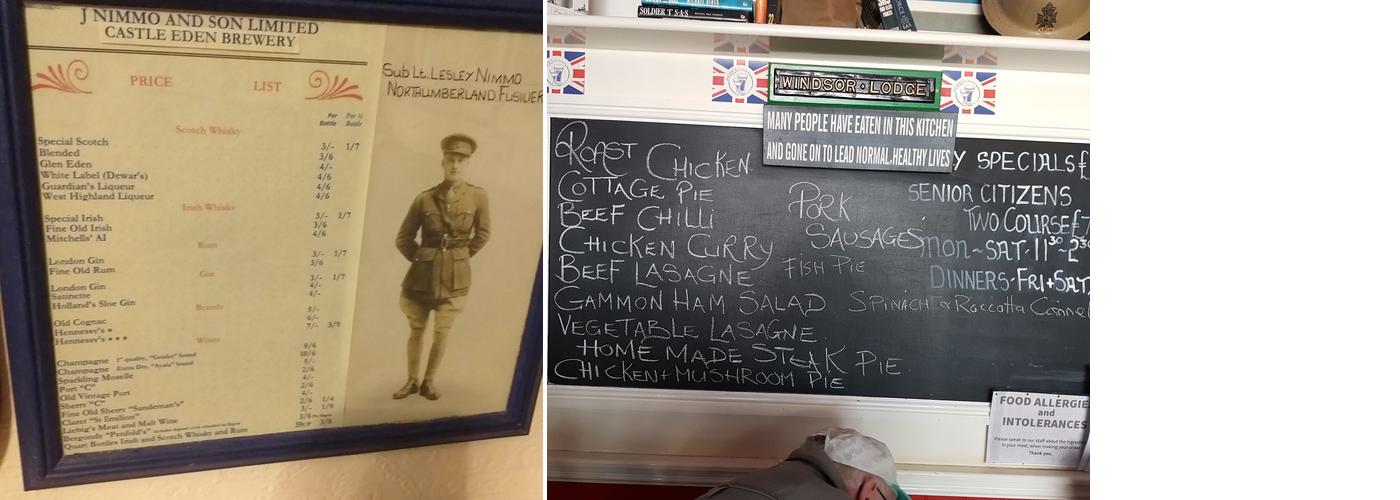 J NIMMO AND SON LIMITED
CASTLE EDEN BREWERY
PRICE LIST
Per Bottle Per ½ Bottle
Scotch Whisky
Special Scotch 3/- 1/7
Blended 3/6
Glen Eden 4/-
White Label (Dewar's) 4/6
Guardian's Liqueur 4/6
West Highland Liqueur 4/6
Irish Whisky
Special Irish 3/- 1/7
Fine Old Irish 3/6
Mitchells' AI 4/6
Rum
London Gin 3/- 1/7
Fine Old Rum 3/6
Gin
London Gin 3/- 1/7
Satinette 4/-
Holland's Sloe Gin 4/-
Brandy
Old Cognac 5/-
Hennessy's * 6/-
Hennessy's * * * 7/- 3/9
Wines
Champagne 1st quality, "Geisler" brand 8/6
Champagne Extra Dry, "Ayala" brand 10/6
Sparkling Moselle 5/-
Port "C" 2/6
Old Vintage Port 4/-
Sherry "C" 2/6
Fine Old Sherry "Sandeman's" 4/-
Claret "St Emilion" 2/6 1/4
Liebig's Meat and Malt Wine 3/- 1/9
Bergundy "Penfold's"
Quart Bottles Irish and Scotch Whisky and Rum
Sub Lt. Lesley Nimmo
Northumberland Fusilier
SOLDIER 'S' S.A.S
WINDSOR LODGE
MANY PEOPLE HAVE EATEN IN THIS KITCHEN
AND GONE ON TO LEAD NORMAL, HEALTHY LIVES
ROAST CHICKEN
COTTAGE PIE
BEEF CHILLI
CHICKEN CURRY
BEEF LASAGNE
GAMMON HAM SALAD
VEGETABLE LASAGNE
HOME MADE STEAK PIE
CHICKEN + MUSHROOM PIE
PORK
SAUSAGES
FISH PIE
SPINACH & Raccotta Cannel
Y SPECIALS £
SENIOR CITIZENS
TWO COURSE £7
MON~SAT·11³⁰~2³⁰
DINNERS·FRI+SAT
FOOD ALLERGIE
and
INTOLERANCES
Please speak to our staff about the ingredie
in your meal, when making your order
Thank you.